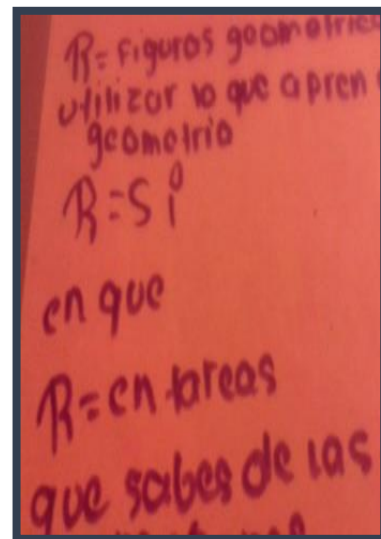 R= figuras geometrics
utilizar lo que apren
geometria
R=Si
en que
R=en tareas
que sabes de las